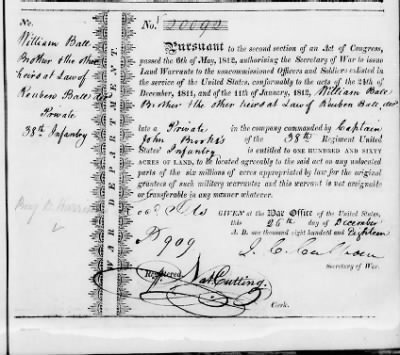 No.
William Ball
Brother & the other
heirs at Law of
Reuben Ball decd
Private
38th Infantry
WAR DEPARTMENT.
No. 20092
Pursuant to the second section of an Act of Congress,
passed the 6th of May, 1812, authorising the Secretary of War to issue
Land Warrants to the noncommissioned Officers and Soldiers enlisted in
the service of the United States, conformably to the acts of the 24th of
December, 1811, and of the 11th of January, 1812, William Ball
Brother & the other heirs at Law of Reuben Ball, decd
late a Private in the company commanded by Captain
John Brooks's of the 38th Regiment United
States' Infantry is entitled to ONE HUNDRED AND SIXTY
ACRES OF LAND, to be located agreeably to the said act on any unlocated
parts of the six millions of acres appropriated by law for the original
grantees of such military warrants; and this warrant is not assignable
or transferable in any manner whatever.
GIVEN at the War Office of the United States,
this 26th day of December
A. D. one thousand eight hundred and Eighteen
909
J. C. Calhoun
Secretary of War.
Registered Nat Cutting.
Clerk.